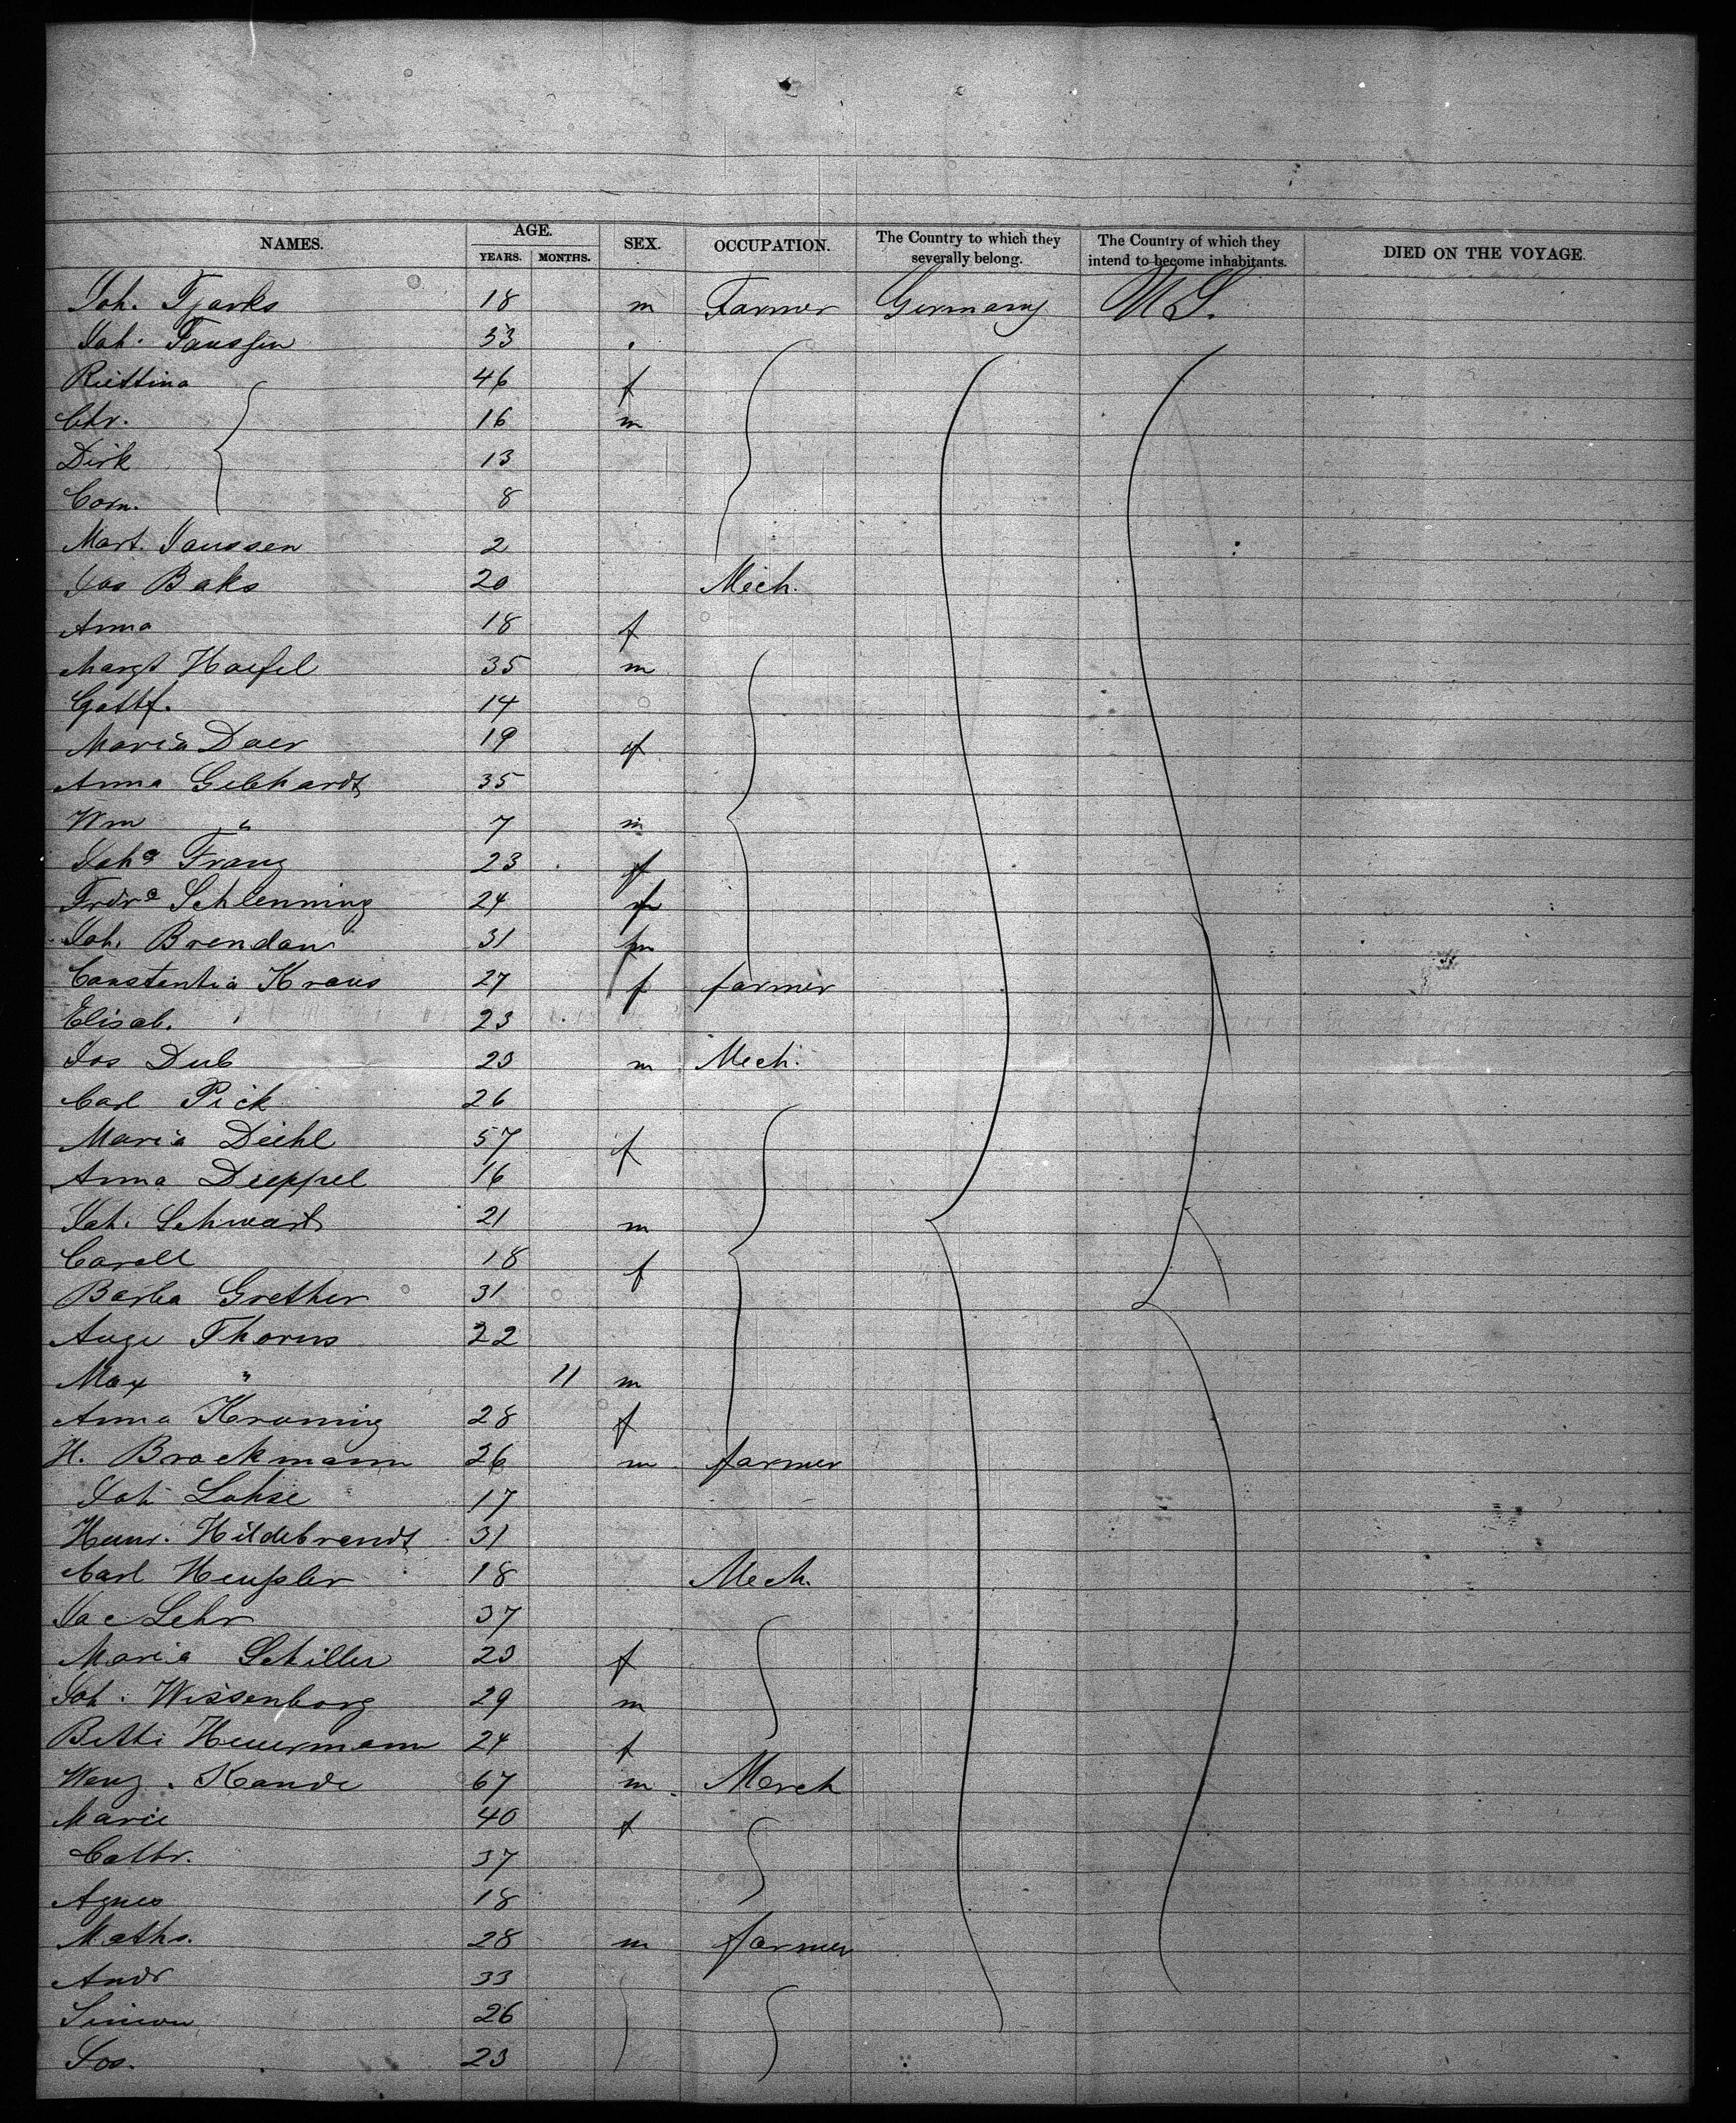 NAMES. AGE. YEARS. MONTHS. SEX. OCCUPATION. The Country to which they severally belong. The Country of which they intend to become inhabitants. DIED ON THE VOYAGE.
Joh. Tjarks 18 m Farmer Germany U.S.
Joh. Janssen 53
46 f
Chr. 16 m
Dirk 13
Corn. 8
Mart. Janssen 2
Jos Baks 20 Mech.
Anna 18 f
Margt Haefel 35 m
Gottf. 14
Maria Daer 19 f
Anna Gebhardt 35
Wm " 7 m
Joha Franz 23 f
Fredre Schlenning 24 f
Joh. Brendau 31 m
Constentia Kraus 27 f farmer
Elisab. 23
Jos Dub 23 m Mech.
Carl Pick 26
Maria Diehl 57 f
Anna Dieppel 16
Joh. Schwart 21 m
18 f
Barba Grether 31
Auge Thorus 22
Max " 11 m
Anna Kroning 28 f
H. Brockmann 26 m farmer
Joh Lohse 17
Heinr. Hildebrandt 31
Carl Heußler 18 Mech.
Jac Lehr 37
Maria Schiller 23 f
Joh. Wissenborg 29 m
Betti Heuermann 24 f
Wenz. Kande 67 m Merch
Marie 40 f
Cathr. 37
Agnes 18
Maths. 28 m farmer
Andr 33
Simon 26
Jos. 23